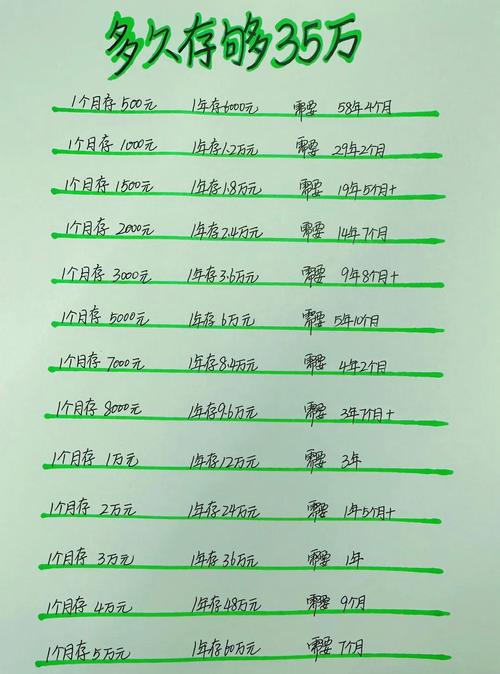 多久存够35万
1个月存500元 1年存6000元 需要 58年4个月
1个月存1000元 1年存1.2万元 需要 29年2个月
1个月存1500元 1年存1.8万元 需要 19年5个月+
1个月存2000元 1年存2.4万元 需要 14年7个月
1个月存3000元 1年存3.6万元 需要 9年8个月+
1个月存5000元 1年存6万元 需要 5年10个月
1个月存7000元 1年存8.4万元 需要 4年2个月
1个月存8000元 1年存9.6万元 需要 3年7个月+
1个月存1万元 1年存12万元 需要 3年
1个月存2万元 1年存24万元 需要 1年5个月+
1个月存3万元 1年存36万元 需要 1年
1个月存4万元 1年存48万元 需要 9个月
1个月存5万元 1年存60万元 需要 7个月